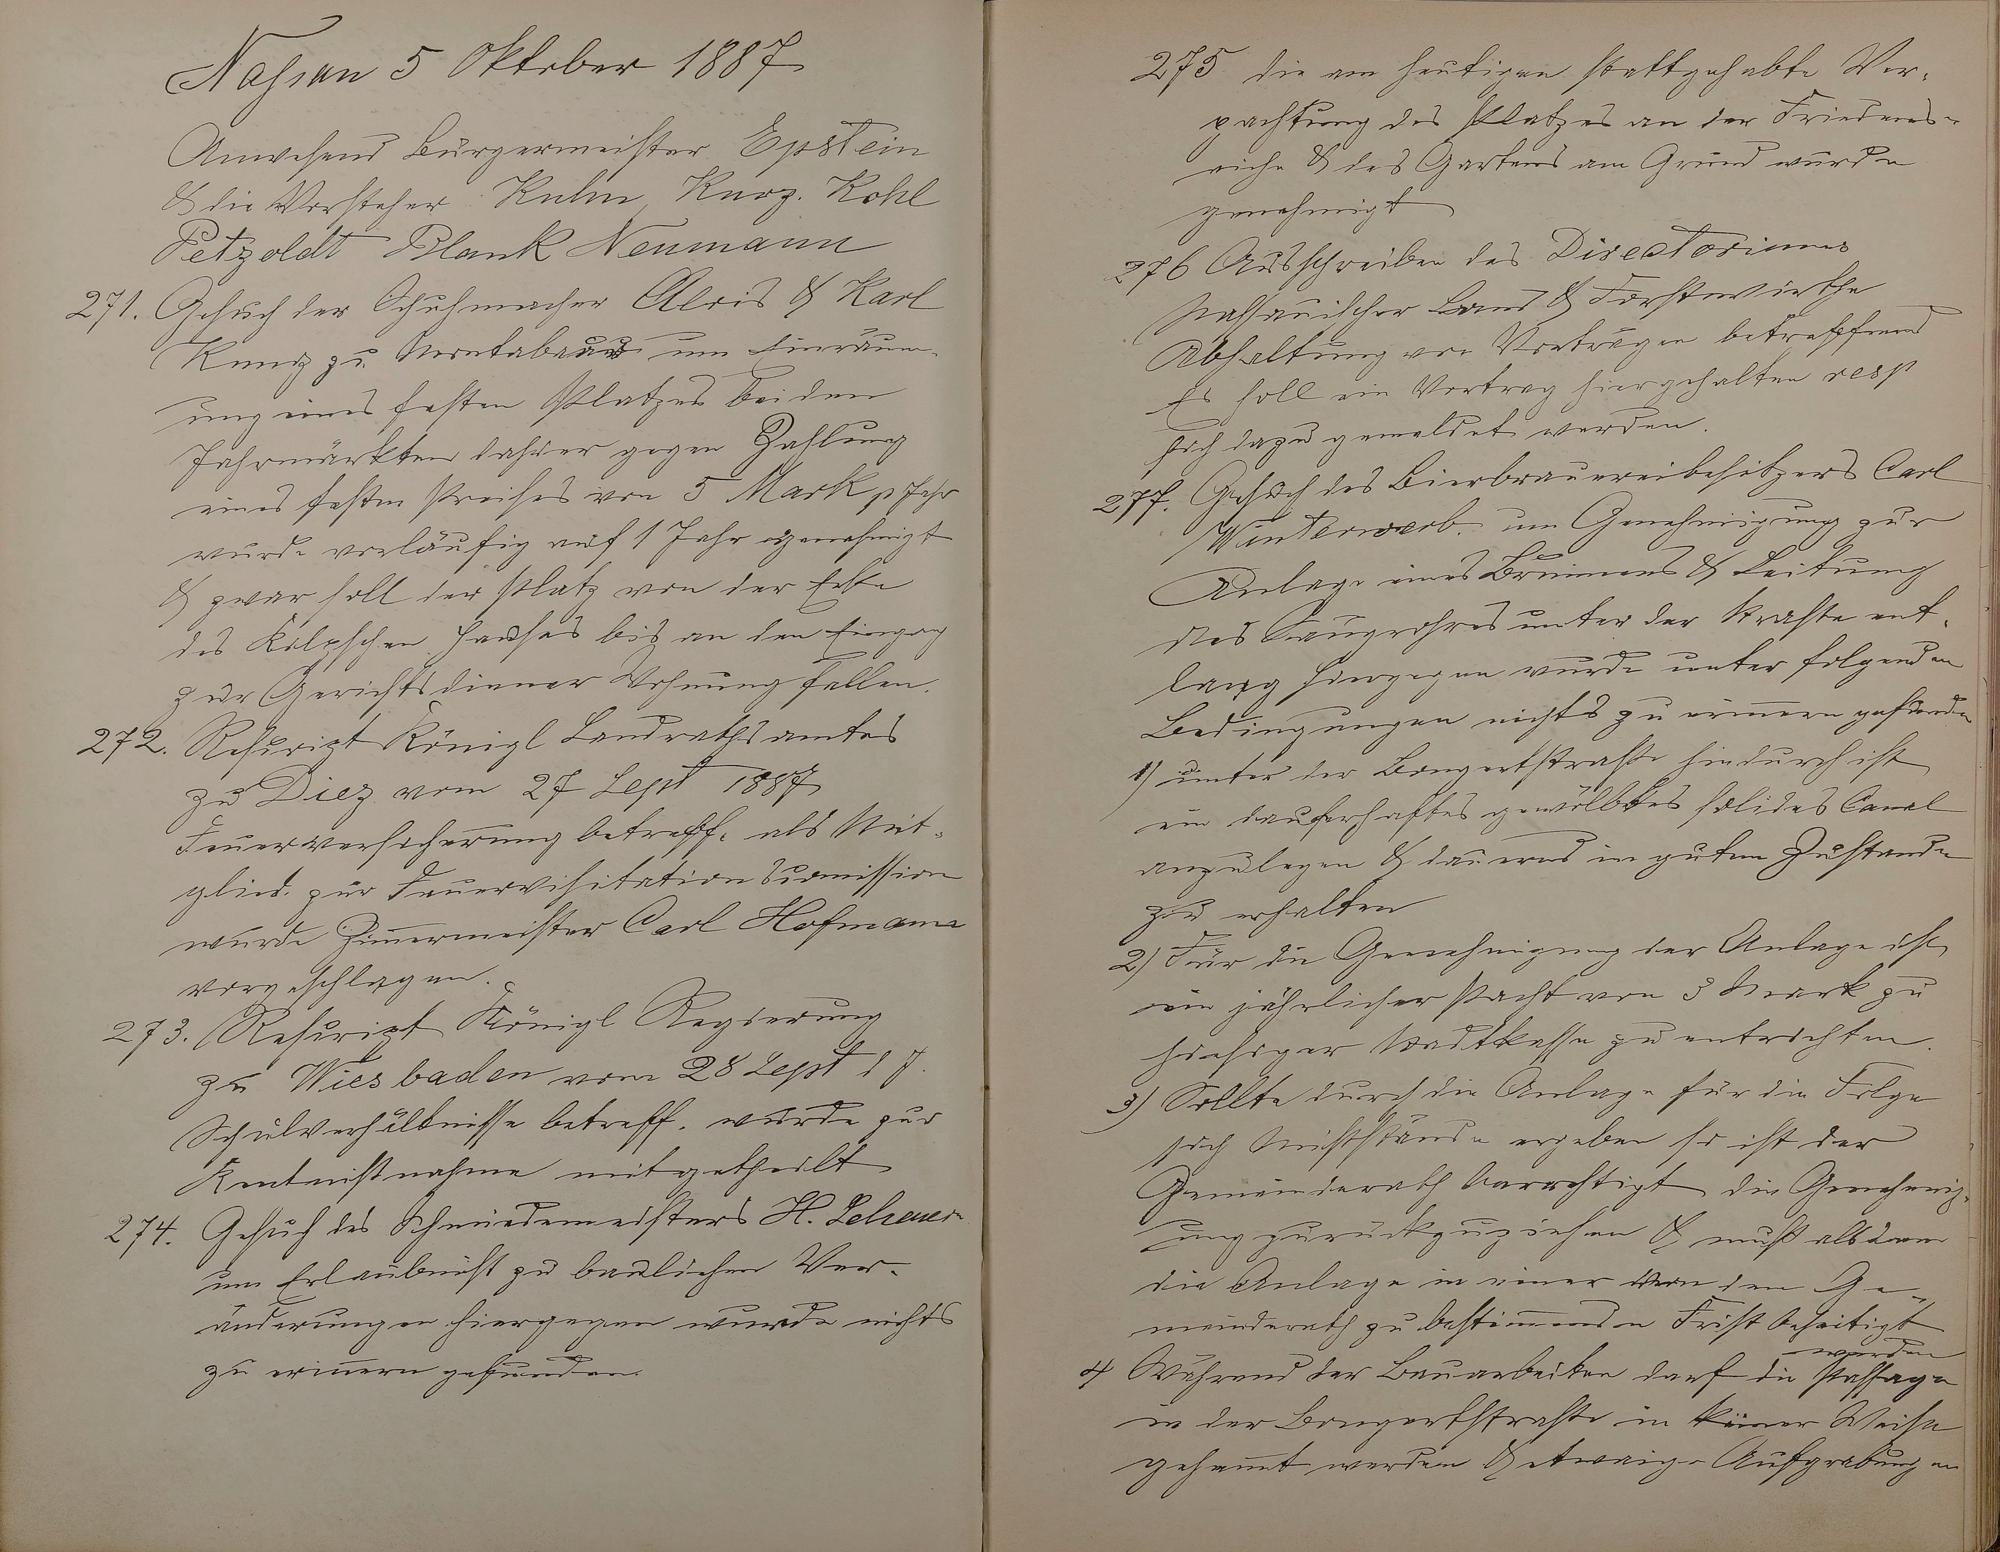 Nassau 5 Oktober 1887
Anwesend Bürgermeister Epstein
& die Vorsteher Kuhn, Kurz. Kohl
Petzoldt Blank Neumann
271. Gesuch der Schuhmacher Alois & Karl
Kunz zu Montabaur um Einräum-
ung eines festen Platzes bei den
Jahrmärkten dahier gegen Zahlung
eines festen Preises von 5 Mark p Jahr
wurde vorläufig auf 1 Jahr genehmigt
& zwar soll der Platz von der Ecke
des Kölpschen Hauses bis an den Eingang
zur Gerichtsdiener Wohnung fallen.
272. Rescript Königl Landrathsamtes
zu Diez vom 27 Sept 1887
Feuerversicherung betreff. als Mit-
glied. zur Feuervisitation Commission
wurde Zimmermeister Carl Hofmann
vorgeschlagen.
273. Rescript Königl Regierung
zu Wiesbaden vom 28 Sept d J.
Schulverhältnisse betreff. wurde zur
Kentnißnahme mitgetheilt
274. Gesuch des Schmiedemeisters H.
um Erlaubniß zu baulichen Ver-
änderungen hiergegen wurde nichts
zu erinnern gefunden.
275 die am heutigen stattgehabte Ver-
pachtung des Platzes an der Friedens-
eiche & des Gartens am Grund wurde
genehmigt
276 Ausschreiben des Directoriums
Nassauischer Land & Forstwirthe
Abhaltung von Vorträgen betreffend
Es soll ein Vortrag hier gehalten resp
sich dazu gemeldet werden.
277. Gesuch des Bierbrauereibesitzers Carl
Winterwerb. um Genehmigung zur
Anlage eines Brunnens & Leitung
des Saugrohres unter der Straße ent-
lang hiergegen wurde unter folgenden
Bedingungen nichts zu erinnern gefunden
1) unter der Bongertstraße hindurch ist
ein dauerhaftes gewölbtes solides Canal
anzulegen & dauernd in gutem Zustande
zu erhalten
2) Für die Genehmigung der Anlage ist
ein jährlicher Pacht von 3 Mark zu
hiesiger Stadtkasse zu entrichten.
3) Sollte durch die Anlage für die Folge
sich Mißstände ergeben so ist der
Gemeinderath berechtigt die Genehmig-
ung zurückzuziehen & muß alsdann
die Anlage in einer von dem Ge-
meinderath zu bestimmenden Frist beseitigt
werden
4 Während der Bauarbeiten darf die Passage
in der Bongertstraße in keiner Weise
gehemmt werden & etwaige Aufgrabungen